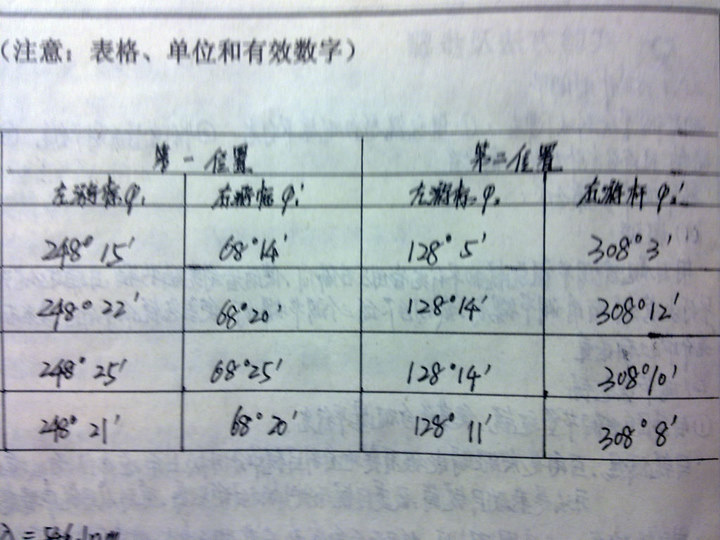 (注意：表格、单位和有效数字)
第一位置 第二位置
左游标φ₁ 右游标φ₁′ 左游标φ₂ 右游标φ₂′
248°15′ 68°14′ 128°5′ 308°3′
248°22′ 68°20′ 128°14′ 308°12′
248°25′ 68°25′ 128°14′ 308°10′
248°21′ 68°20′ 128°11′ 308°8′